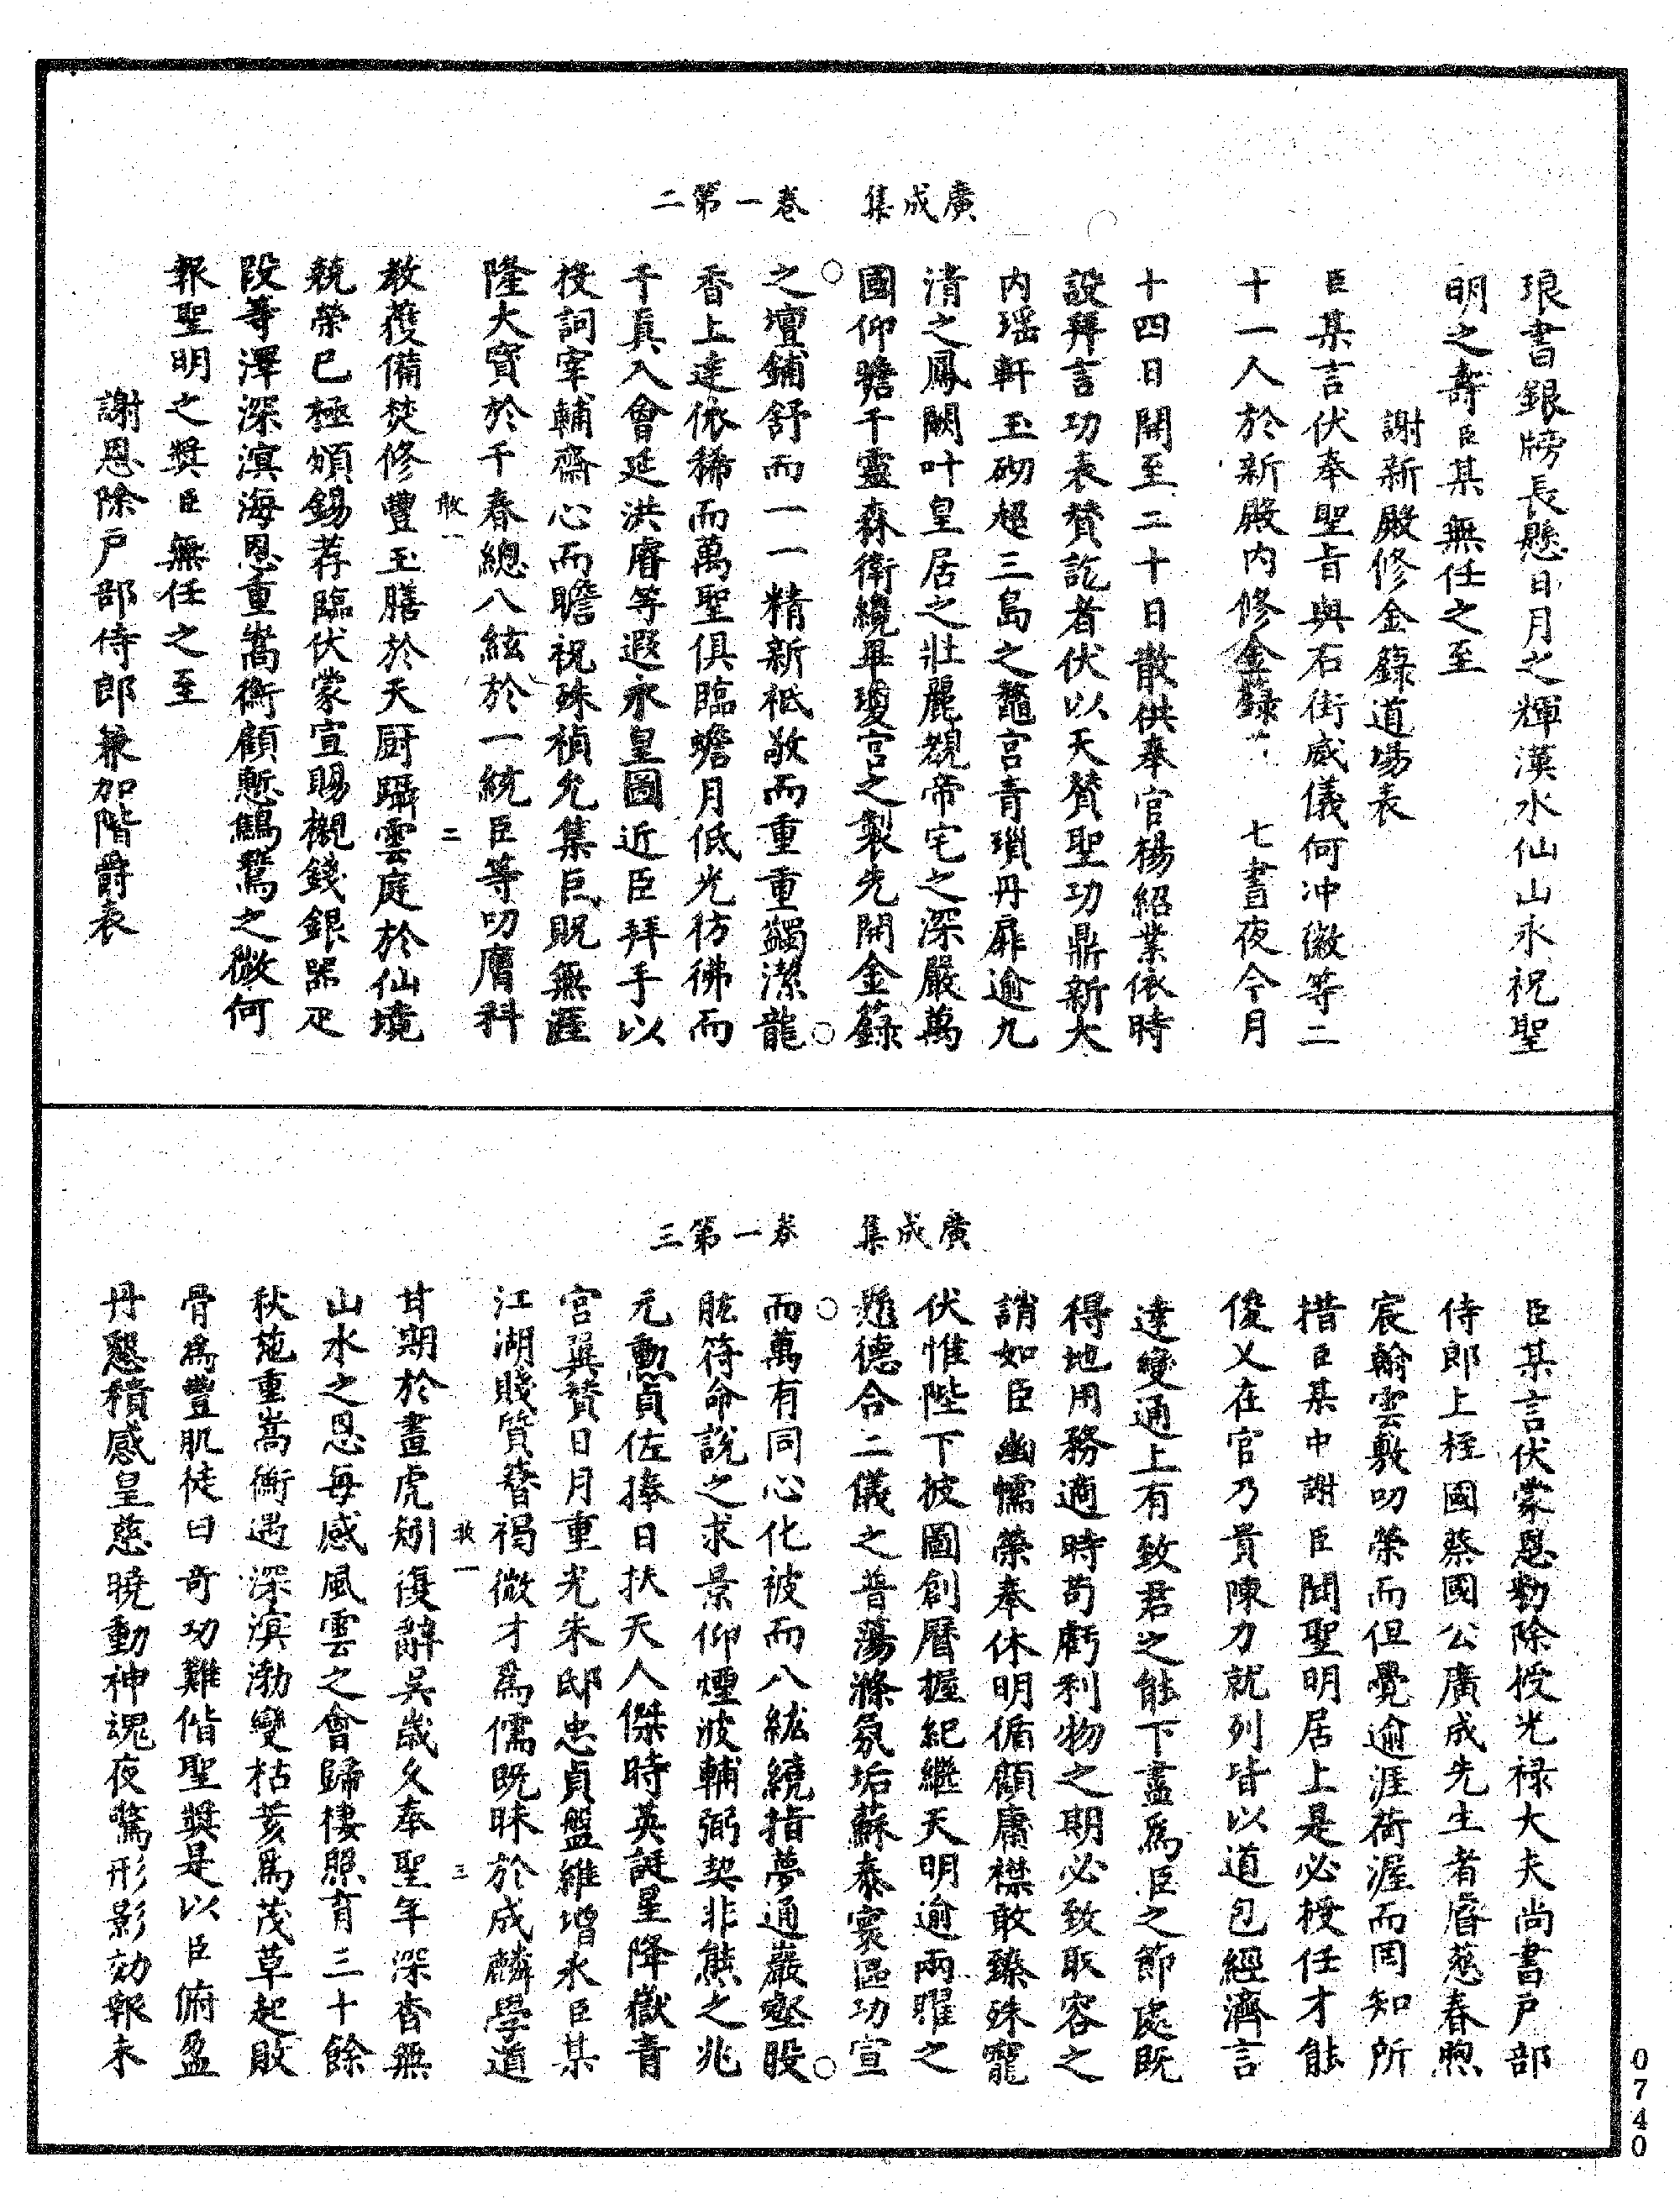 廣成集　卷一第二
琅書銀牓長懸日月之輝漢水仙山永祝聖
明之壽臣某無任之至
謝新殿修金籙道場表
臣某言伏奉聖旨與右街威儀何冲徽等二
十一人於新殿內修金籙　七晝夜今月
十四日開至二十日散供奉官楊紹業依時
設拜言功表贊訖者伏以天贊聖功鼎新大
内瑶軒玉砌超三島之鼇宮青瑣丹扉逾九
清之鳳闕叶皇居之壯麗覩帝宅之深嚴萬
國仰瞻千靈森衛纔畢瓊宮之製先開金籙
之壇鋪舒而一一精新祗敬而重重蠲潔龍
香上達依稀而萬聖俱臨蟾月低光彷彿而
千真入會延洪睿筭遐永皇圖近臣拜手以
投詞宰輔齋心而瞻祝殊禎允集巨貺無涯
隆大寳於千春總八紘於一統臣等叨膺科
敢一　二
教獲備焚修豐玉膳於天厨躡雲庭於仙境
兢榮已極頒錫荐臨伏蒙宣賜櫬錢銀器疋
段等澤深溟海恩重嵩衡顧慙鷦鷃之微何
報聖明之奬臣無任之至
謝恩除户部侍郎兼加階爵表
廣成集　卷一第三
臣某言伏蒙恩勑除授光禄大夫尚書户部
侍郎上柱國蔡國公廣成先生者睿慈春煦
宸翰雲敷叨榮而但覺逾涯荷渥而罔知所
措臣某中謝臣聞聖明居上是必授任才能
俊乂在官乃貴陳力就列皆以道包經濟言
達變通上有致君之能下盡爲臣之節處既
得地用務適時苟虧利物之期必致取容之
誚如臣幽懦榮奉休明循顧庸襟敢臻殊寵
伏惟陛下披圖創曆握紀繼天明逾兩曜之
懸德合二儀之普蕩滌氛垢蘇泰寰區功宣
而萬有同心化被而八紘繞指夢通巖壑股
肱符命說之求景仰煙波輔弼契非熊之兆
元勳貞佐捧日扶天人傑時英誕星降嶽青
宮巽贊日月重光朱邸忠貞盤維增永臣某
江湖賤質簪褐微才爲儒既昧於成麟學道
敢一　三
甘期於畫虎矧復辭吳歲久奉聖年深杳無
山水之恩每感風雲之會歸棲照育三十餘
秋施重嵩衡遇深溟渤變枯荄爲茂草起敗
骨爲豐肌徒曰奇功難偕聖奬是以臣俯盈
丹懇積感皇慈曉動神魂夜驚形影効報未
0740